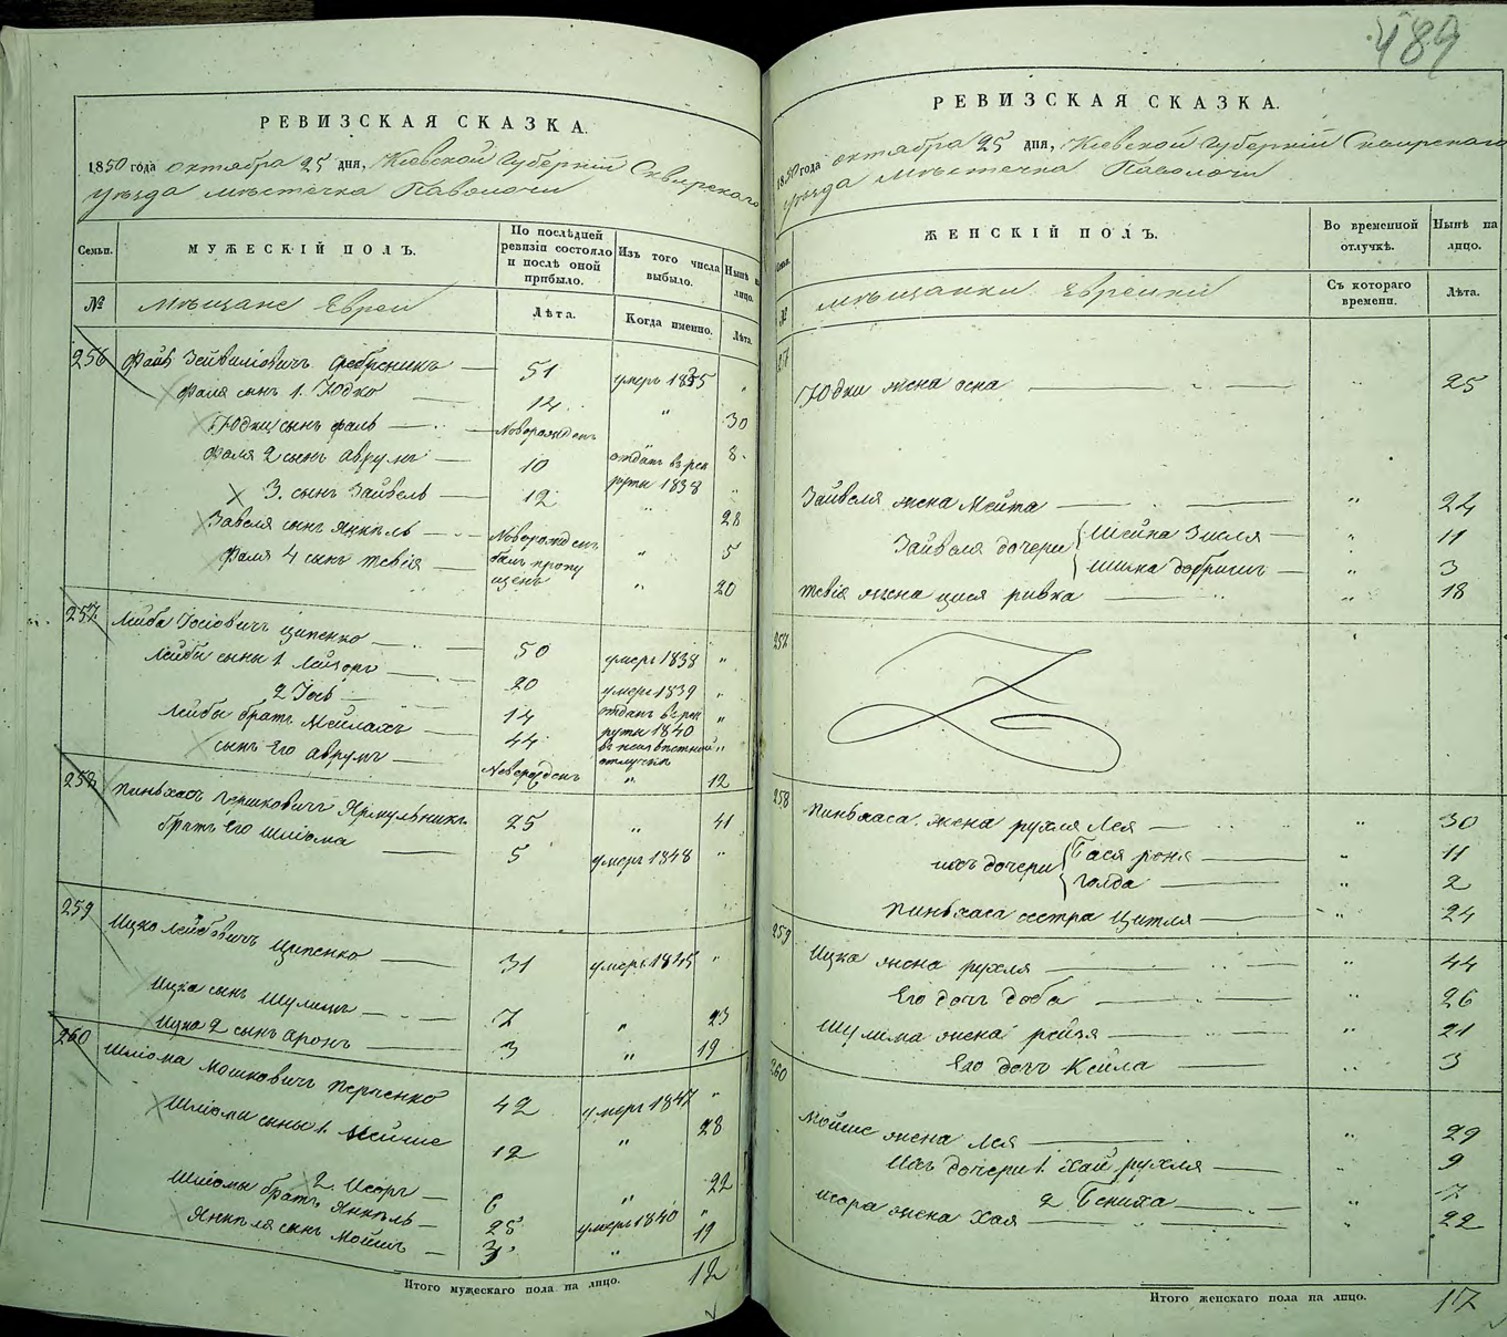 489
РЕВИЗСКАЯ СКАЗКА.
1850 года октября 25 дня, Кіевской Губерніи Сквирскаго
уѣзда мѣстечка Паволочи
Семьи. МУЖЕСКІЙ ПОЛЪ. По послѣдней ревизіи состояло и послѣ оной прибыло. Изъ того числа выбыло. Нынѣ на лицо.
№ Мѣщане Евреи Лѣта. Когда именно. Лѣта.
256 Файв Зейвиліовичъ Сребрсникъ 51 умеръ 1835 "
Фаля сынъ 1. Юдко 14 " 30
Юдки сынъ фаль Новорожденъ 8
Фаля 2 сынъ аврумъ 10 отданъ въ рек руты 1838 "
3. сынъ Зайвель 12 " 28
Завеля сынъ янкель Новорожденъ " 5
Фаля 4 сынъ тевія былъ пропу щенъ " 20
257 Лейба Іосіовичъ ципенко 50 умеръ 1838 "
Лейбы сыны 1 Лейзоръ 20 умеръ 1839 "
2 Іось 14 отданъ въ рек руты 1840 "
Лейбы братъ Мейлахъ 44 въ неизвѣстной отлучкѣ "
сынъ Его аврумъ Новорожденъ " 12
258 Пиньхасъ Гершковичъ Ярмульникъ 25 " 41
братъ Его Шліома 5 умеръ 1848 "
259 Ицко Лейбовичъ Ципенко 31 умеръ 1845 "
Ицка сынъ Шулимъ 7 " 23
Ицка 2 сынъ Аронъ 3 " 19
260 Шліома Мошковичъ Перченко 42 умеръ 1847 "
Шліомы сыны 1. Мойше 12 " 28
2. Исоръ 6 " 22
Шліомы братъ Янкель 25 умеръ 1840 "
Янкеля сынъ Мошш 3 " 19
Итого мужескаго пола на лицо. 12
РЕВИЗСКАЯ СКАЗКА.
1850 года октября 25 дня, Кіевской Губерніи Сквирскаго
уѣзда мѣстечка Паволочи
Семьи. ЖЕНСКІЙ ПОЛЪ. Во временной отлучкѣ. Нынѣ на лицо.
№ Мѣщанки Еврейки Съ котораго времени. Лѣта.
Юдки жена осна " 25
Зайвеля жена Мейта " 24
Зайвеля дочери Шейна Зисля " 11
Шима добришъ " 3
тевія жена цися ривка " 18
257
258 Пиньхаса жена рухля Лея " 30
ихъ дочери Бася роня " 11
Голда " 2
Пиньхаса сестра Цитля " 24
259 Ицка жена рухля " 44
Его дочь доба " 26
Шулима жена рейзя " 21
Его дочь Кейла " 3
260 Мойше жена Лея " 29
Ихъ дочери 1. Хай рухля " 9
2 Бениха " 7
исора жена Хая " 22
Итого женскаго пола на лицо. 17